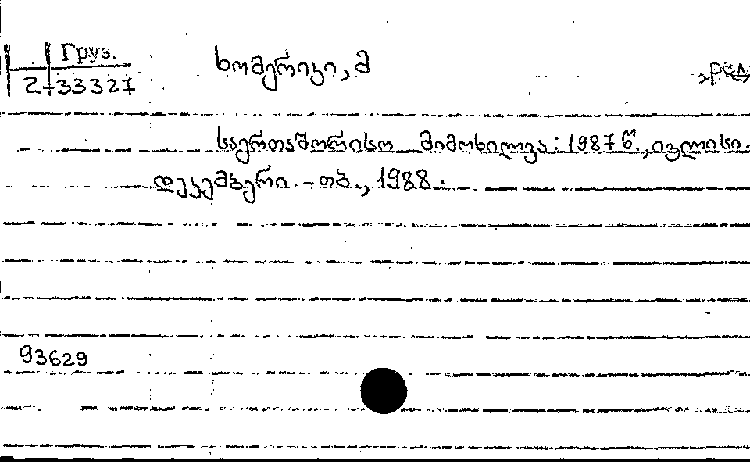 Груз.
2-33327
ხომერიკი, მ
საერთაშორისო მიმოხილვა: 1987 წ., ივლისი-
დეკემბერი. - თბ., 1988.
93629